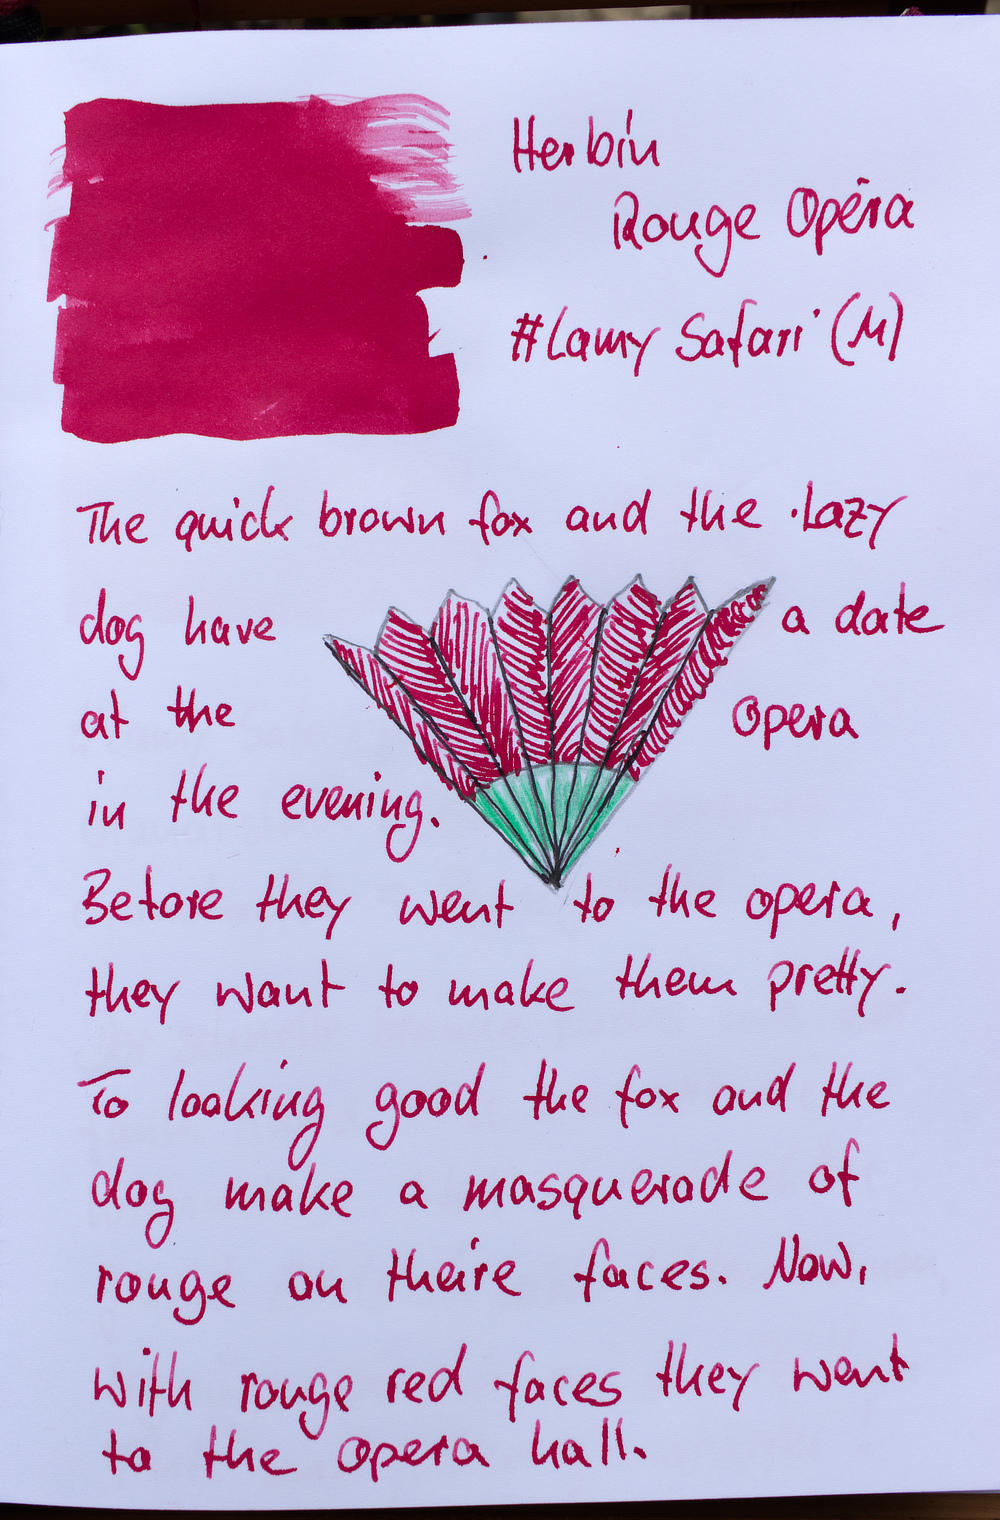 Herbin
Rouge Opéra
#Lamy Safari (M)
The quick brown fox and the Lazy
dog have a date
at the Opera
in the evening.
Before they went to the opera,
they want to make them pretty.
To looking good the fox and the
dog make a masquerade of
rouge on theire faces. Now,
with rouge red faces they went
to the opera hall.